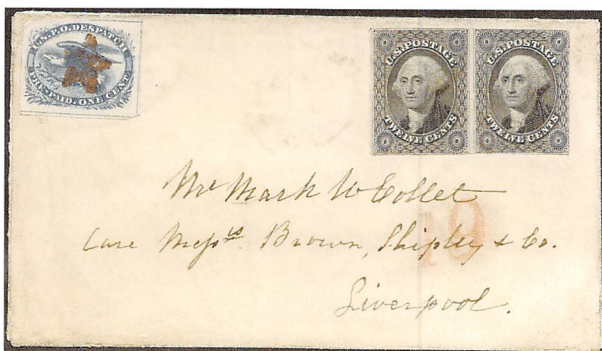 U.S.P.O.DESPATCH
PRE-PAID.ONE CENT
U.S. POSTAGE
TWELVE CENTS
U.S. POSTAGE
TWELVE CENTS
Mr Mark W Collet
Care Messrs. Brown, Shipley & Co.
19
Liverpool.